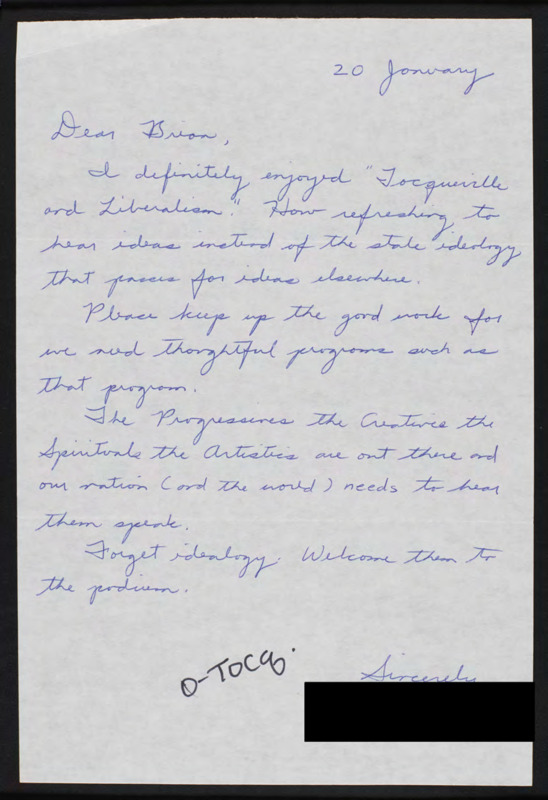 20 January
Dear Brian,
I definitely enjoyed "Tocqueville
and Liberalism." How refreshing to
hear ideas instead of the stale ideology
that passes for ideas elsewhere.
Please keep up the good work for
we need thoughtful programs such as
that program.
The Progressives the Creatives the
Spirituals the Artistics are out there and
our nation (and the world) needs to hear
them speak.
Forget idealogy. Welcome them to
the podium.
O-TOCQ.
Sincerely